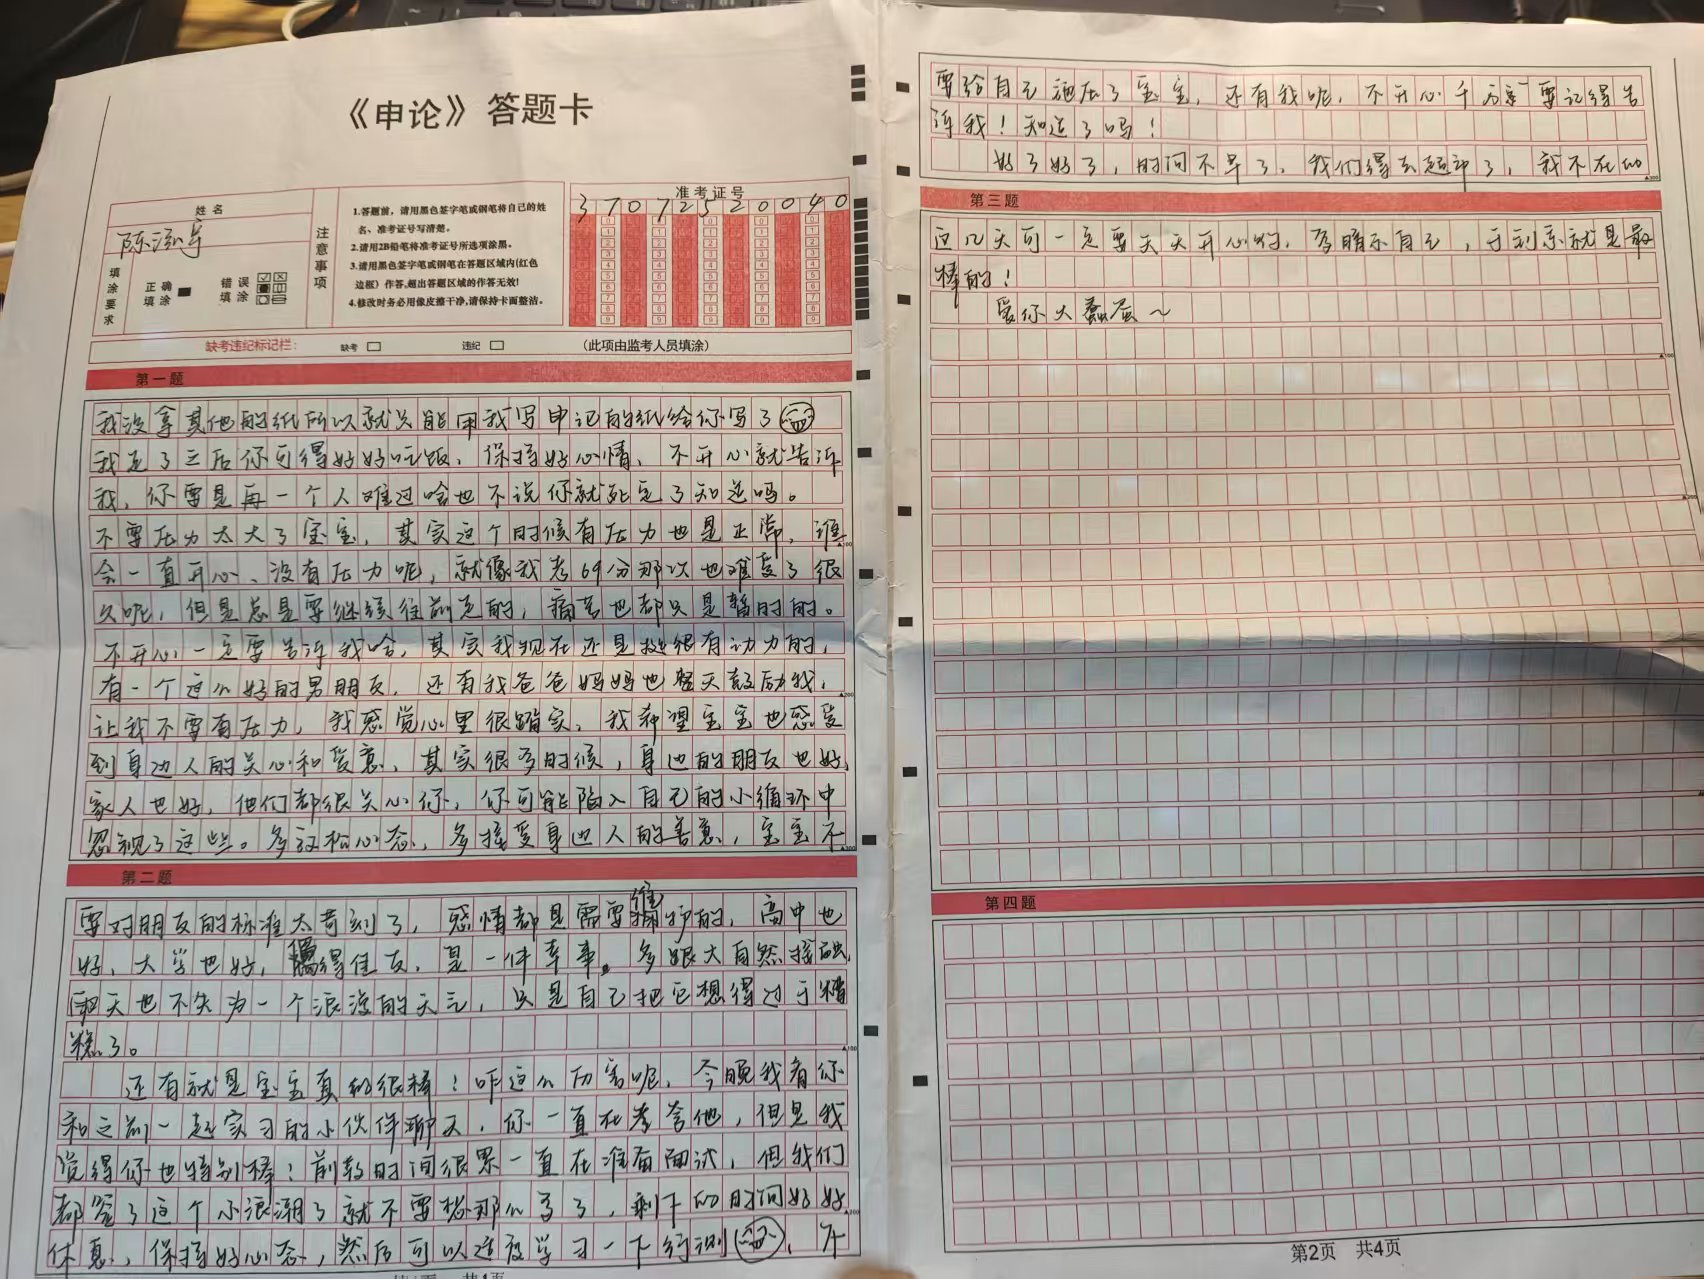 《申论》答题卡
姓名
陈
填涂要求
正确填涂
错误填涂
注意事项
1.答题前，请用黑色签字笔或钢笔将自己的姓
名、准考证号写清楚。
2.请用2B铅笔将准考证号所选项涂黑。
3.请用黑色签字笔或钢笔在答题区域内(红色
边框）作答,超出答题区域的作答无效!
4.修改时务必用像皮擦干净,请保持卡面整洁。
准考证号
370725200040
缺考违纪标记栏：
缺考
违纪
（此项由监考人员填涂）
第一题
我没拿其他的纸所以就只能用我写申论的纸给你写了
我走了之后你可得好好吃饭、保持好心情、不开心就告诉
我，你要是再一个人难过啥也不说你就死定了知道吗。
不要压力太大了宝宝，其实这个时候有压力也是正常，谁
会一直开心、没有压力呢，就像我考69分那次也难受了很
久呢，但是总是要继续往前走的，痛苦也都只是暂时的。
不开心一定要告诉我哈，其实我现在还是挺很有动力的，
有一个这么好的男朋友，还有我爸爸妈妈也整天鼓励我，
让我不要有压力，我感觉心里很踏实，我希望宝宝也感受
到身边人的关心和爱意，其实很多时候，身边的朋友也好，
家人也好，他们都很关心你，你可能陷入自己的小循环中
忽视了这些。多放松心态，多接受身边人的善意，宝宝不
第二题
要对朋友的标准太苛刻了，感情都是需要维护的，高中也
好，大学也好，偶得佳友，是一件幸事。多跟大自然接触，
雨天也不失为一个浪漫的天气，只是自己把它想得过于糟
糕了。
还有就是宝宝真的很棒！咋这么厉害呢，今晚我看你
和之前一起实习的小伙伴聊天，你一直在夸夸他，但是我
觉得你也特别棒！前段时间很累一直在准备面试，但我们
都签了这个小浪潮了就不要想那么多了，剩下的时间好好
休息，保持好心态，然后可以适度学习一下行测，不
第1页 共4页
要给自己施压了宝宝，还有我呢，不开心千万一定要记得告
诉我！知道了吗！
好了好了，时间不早了，我们得去超市了，我不在的
第三题
这几天可一定要天天开心的，多晒
自己，
就是最
棒的！
爱你大蠢蛋～
第四题
第2页 共4页